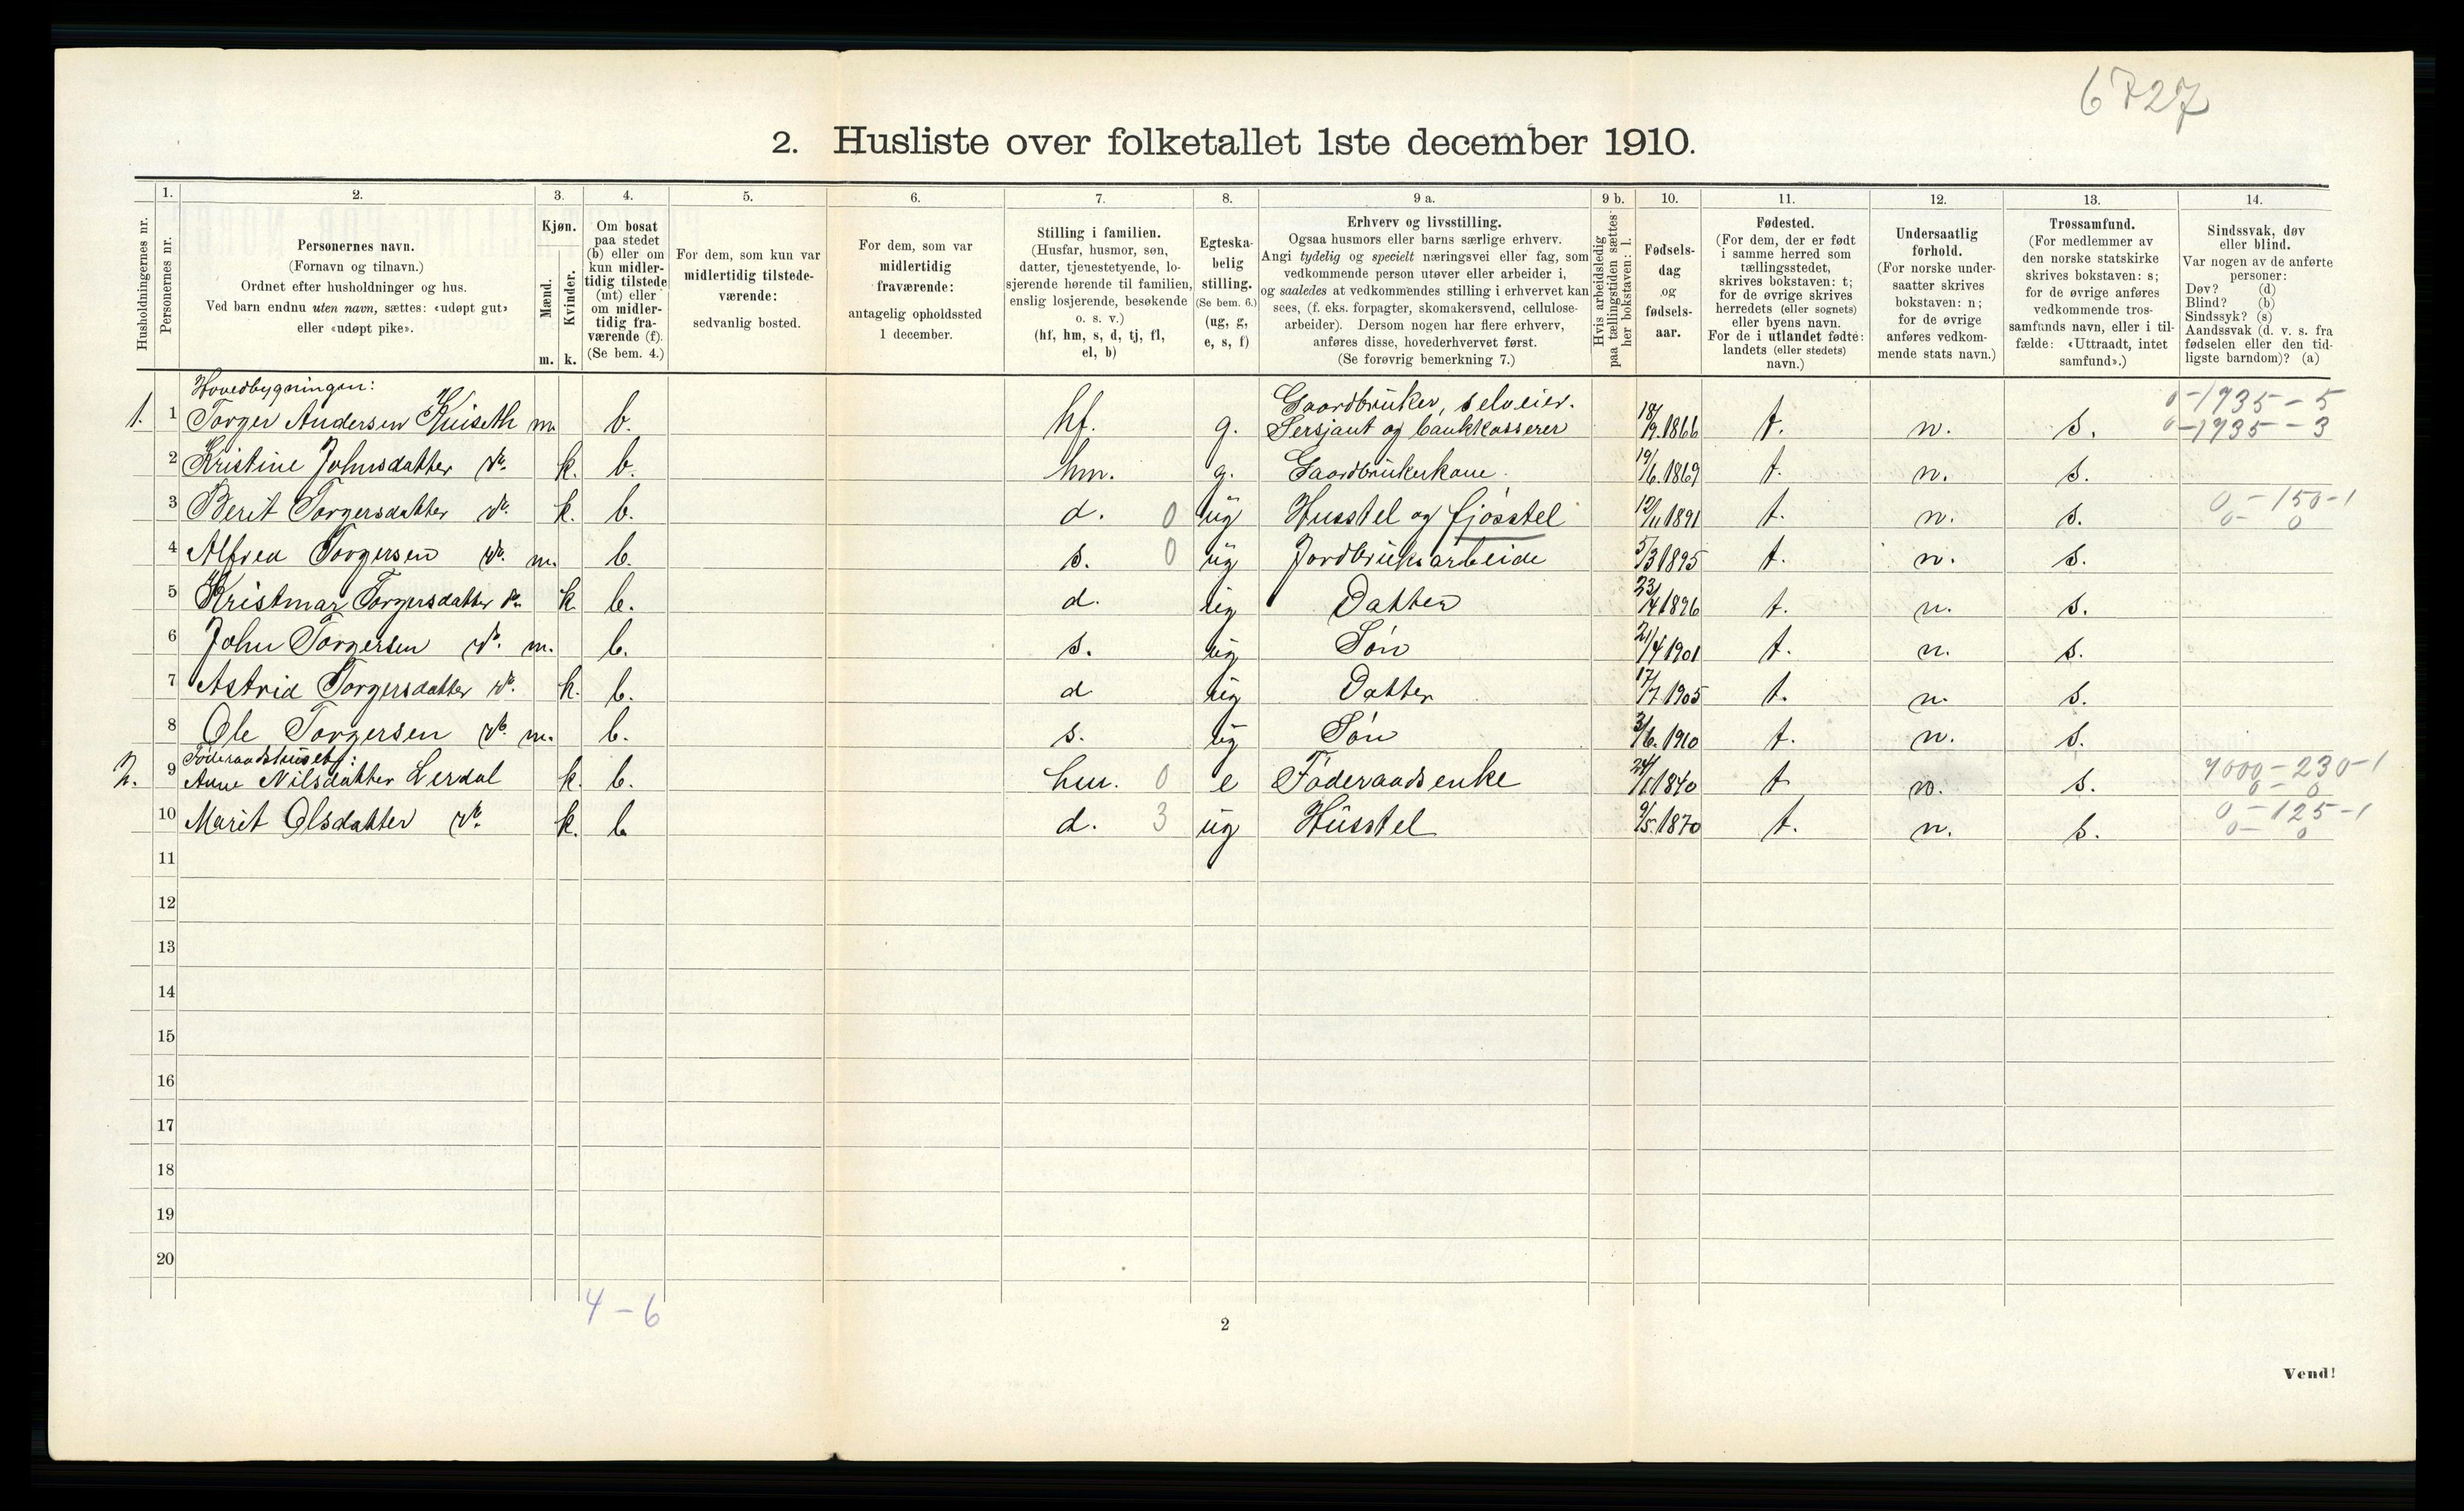 6727
2. Husliste over folketallet 1ste december 1910.
Husholdningernes nr.
1.
Personernes nr.
2.
Personernes navn.
(Fornavn og tilnavn.)
Ordnet efter husholdninger og hus.
Ved barn endnu uten navn, sættes: «udøpt gut»
eller «udøpt pike».
3.
Kjøn.
Mænd.
Kvinder.
m. k.
4.
Om bosat
paa stedet
(b) eller om
kun midler-
tidig tilstede
(mt) eller
om midler-
tidig fra-
værende (f).
(Se bem. 4.)
5.
For dem, som kun var
midlertidig tilstede-
værende:
sedvanlig bosted.
6.
For dem, som var
midlertidig
fraværende:
antagelig opholdssted
1 december.
7.
Stilling i familien.
(Husfar, husmor, søn,
datter, tjenestetyende, lo-
sjerende hørende til familien,
enslig losjerende, besøkende
o. s. v.)
(hf, hm, s, d, tj, fl,
el, b)
8.
Egteska-
belig
stilling.
(Se bem. 6.)
(ug, g,
e, s, f)
9 a.
Erhverv og livsstilling.
Ogsaa husmors eller barns særlige erhverv.
Angi tydelig og specielt næringsvei eller fag, som
vedkommende person utøver eller arbeider i,
og saaledes at vedkommendes stilling i erhvervet kan
sees, (f. eks. forpagter, skomakersvend, cellulose-
arbeider). Dersom nogen har flere erhverv,
anføres disse, hovederhvervet først.
(Se forøvrig bemerkning 7.)
9 b.
Hvis arbeidsledig
paa tællingstiden sættes
her bokstaven: l.
10.
Fødsels-
dag
og
fødsels-
aar.
11.
Fødested.
(For dem, der er født
i samme herred som
tællingsstedet,
skrives bokstaven: t;
for de øvrige skrives
herredets (eller sognets)
eller byens navn.
For de i utlandet fødte:
landets (eller stedets)
navn.)
12.
Undersaatlig
forhold.
(For norske under-
saatter skrives
bokstaven: n;
for de øvrige
anføres vedkom-
mende stats navn.)
13.
Trossamfund.
(For medlemmer av
den norske statskirke
skrives bokstaven: s;
for de øvrige anføres
vedkommende tros-
samfunds navn, eller i til-
fælde: «Uttraadt, intet
samfund».)
14.
Sindssvak, døv
eller blind.
Var nogen av de anførte
personer:
Døv? (d)
Blind? (b)
Sindssyk? (s)
Aandssvak (d. v. s. fra
fødselen eller den tid-
ligste barndom)? (a)
Hovedbygningen:
Gaardbruker, selveier. 0-1935-5
1. 1 Torger Andersen Kuiseth m. b. hf. g. Sersjant og bankkasserer 18/9.1866 t. n. s. 0-1935-3
2 Kristine Johnsdatter do. k. b. hm. g. Gaardbrukerkone 19/6.1869 t. n. s.
3 Berit Torgersdatter do. k. b. d. 0 ug Husstel og fjøsstel 12/11 1891 t. n. s. 0-150-1
0- 0
4 Alfred Torgersen do. m. b. s. 0 ug Jordbruksarbeide 5/3 1895 t. n. s.
5 Kristmar Torgersdatter do. k. b. d. ug Datter 23/4 1896 t. n. s.
6 John Torgersen do. m. b. s. ug Søn 21/4 1901 t. n. s.
7 Astrid Torgersdatter do. k. b. d ug Datter 17/7 1905 t. n. s.
8 Ole Torgersen do. m. b. s. ug Søn 3/6. 1910 t. n. s.
Føderaadshuset:
2. 9 Anne Nilsdatter Lerdal k. b. hm. 0 e Føderaadsenke 24/1 1840 t n. s. 4000-230-1
0- 0
10 Marit Olsdatter do. k. b d. 3 ug Husstel 9/5.1870 t. n. s. 0-125-1
0- 0
11
12
13
14
15
16
17
18
19
20
4-6
2
Vend!